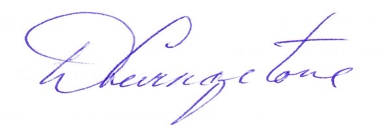 D Livingstone